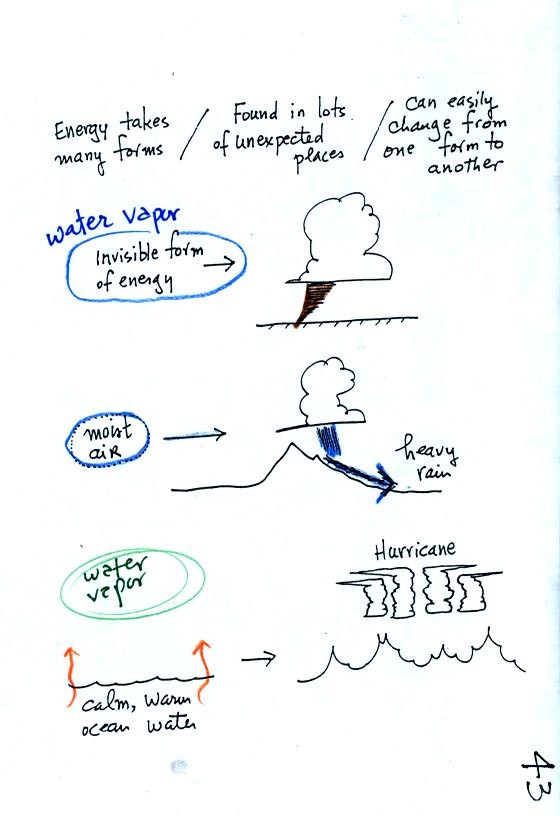 Energy takes
many forms
/
Found in lots
of unexpected
places
/
can easily
change from
one form to
another
water vapor
Invisible form
of energy
moist
air
heavy
rain
water
vapor
Hurricane
calm, warm
ocean water
43